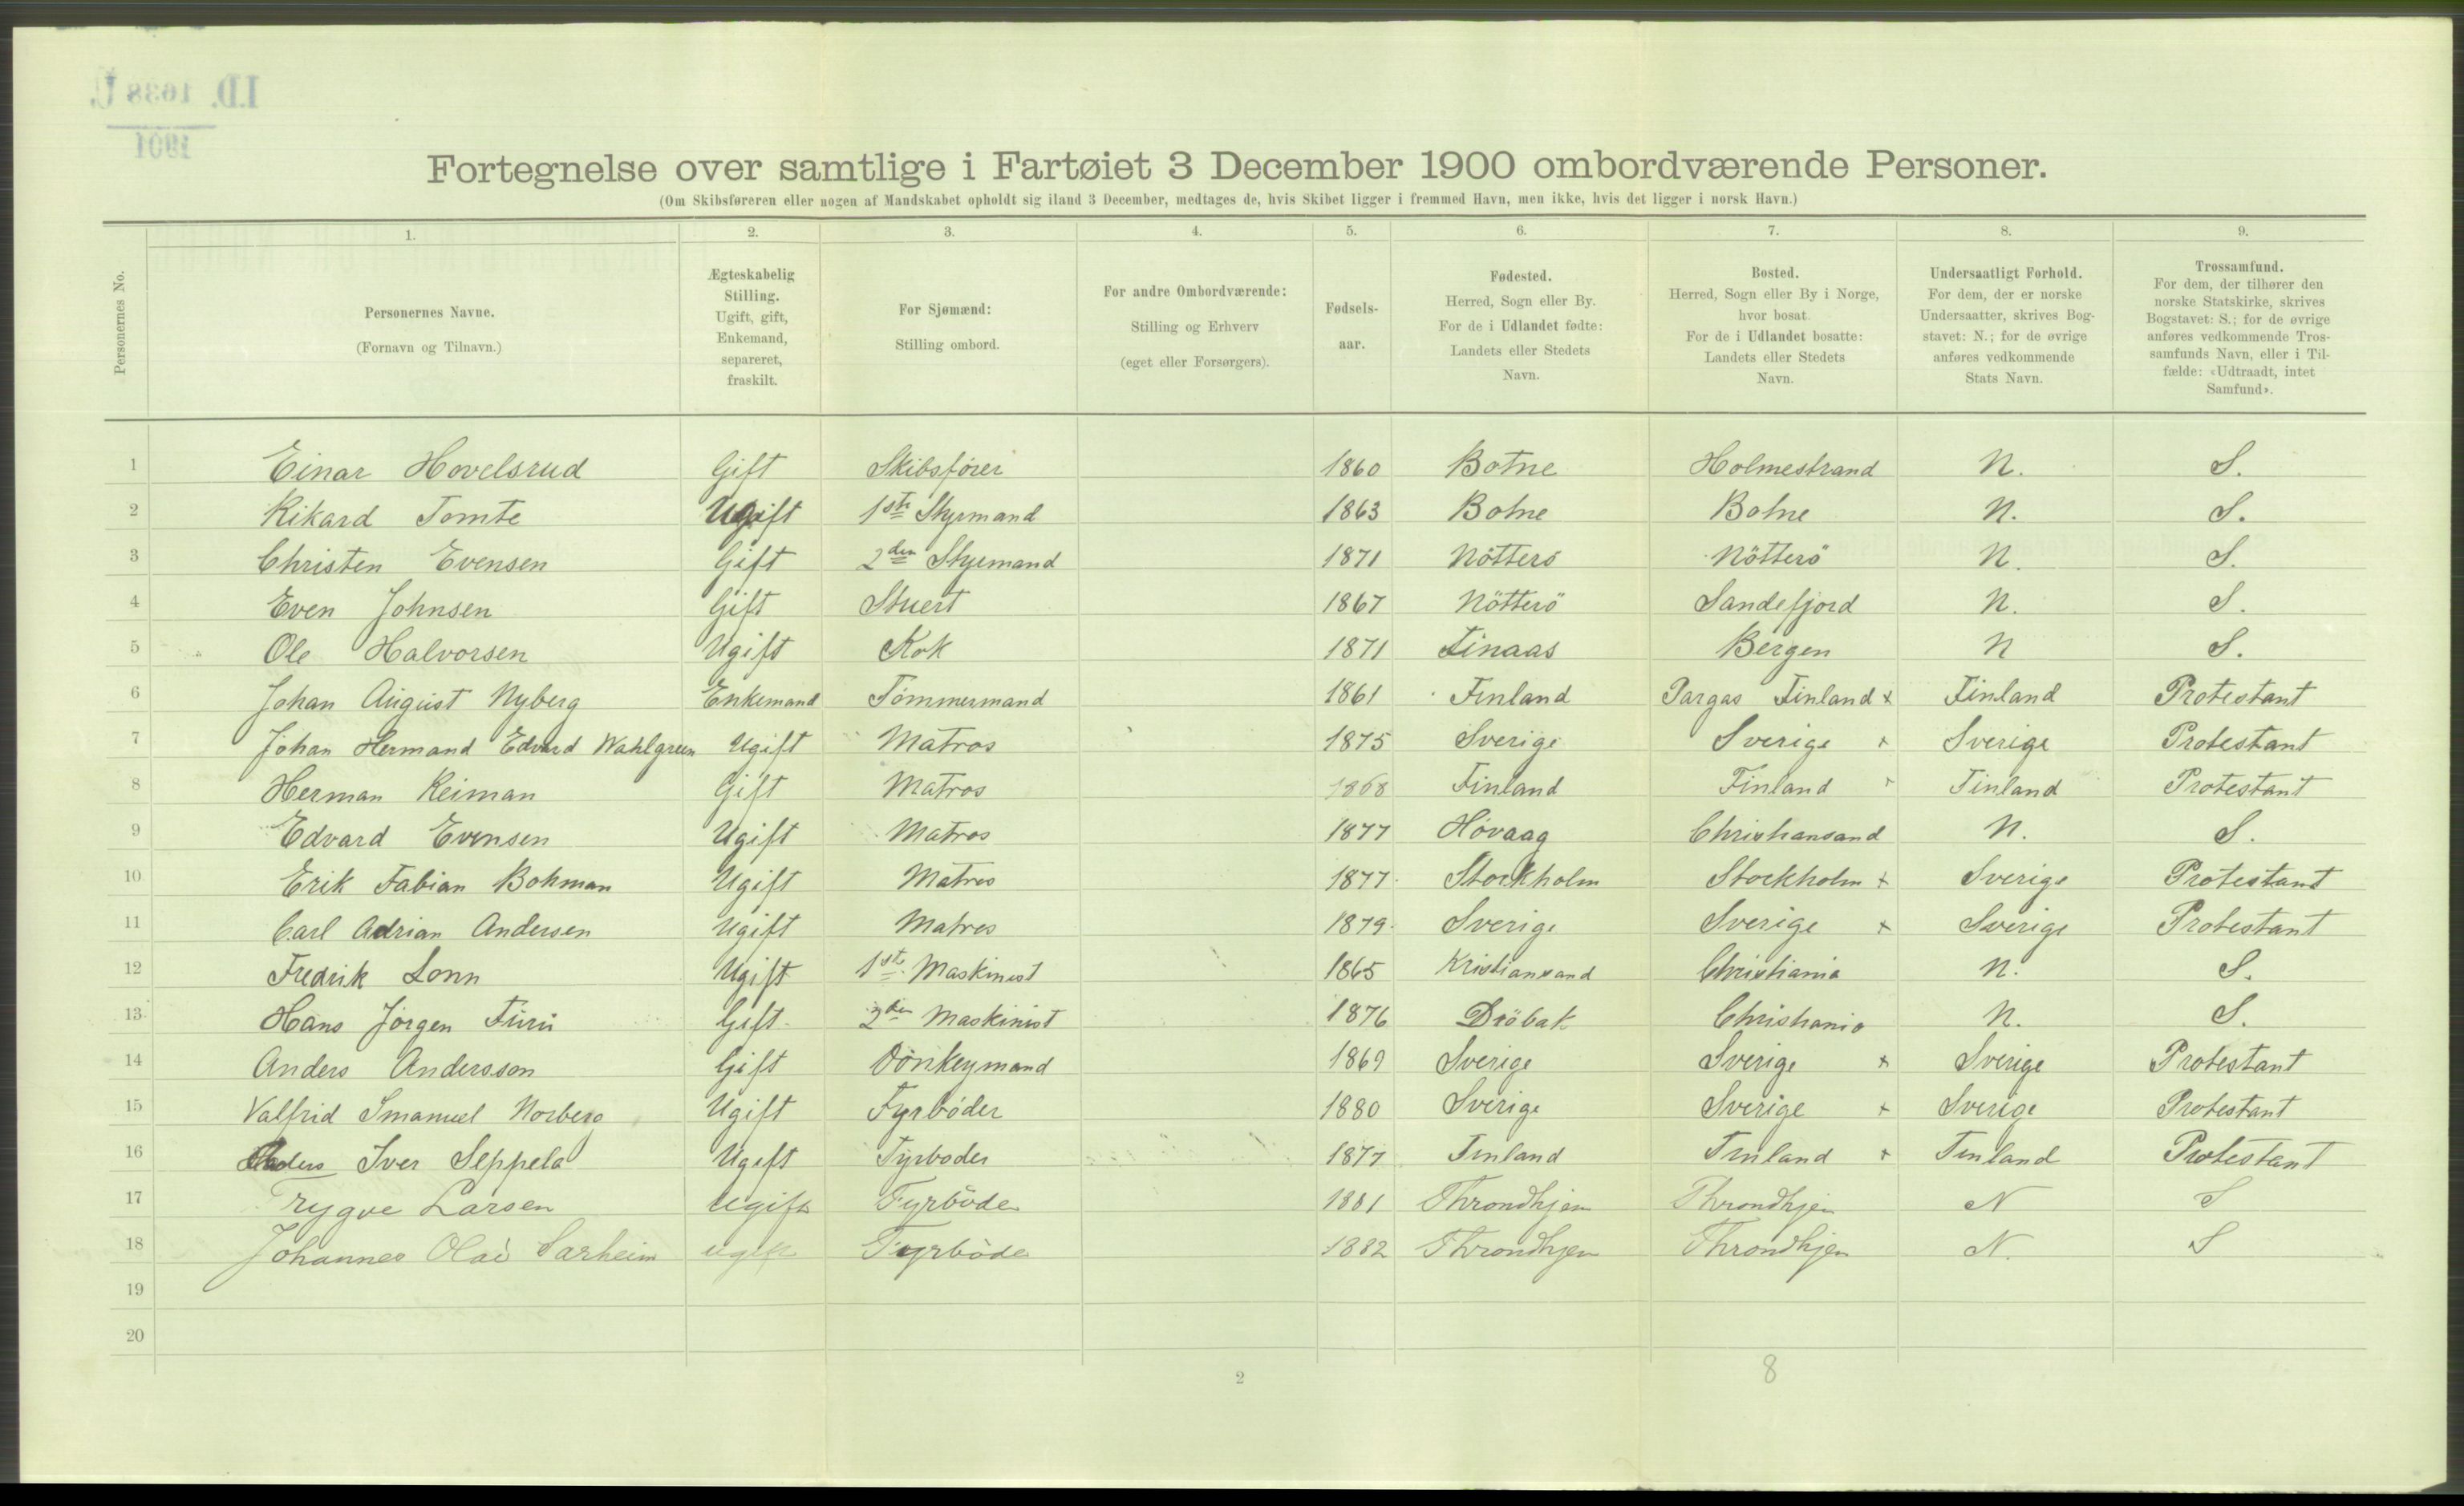 I.D. 1638 U.
1901
Fortegnelse over samtlige i Fartøiet 3 December 1900 ombordværende Personer.
(Om Skibsføreren eller nogen af Mandskabet opholdt sig iland 3 December, medtages de, hvis Skibet ligger i fremmed Havn, men ikke, hvis det ligger i norsk Havn.)
Personernes No.
1. 2. 3. 4. 5. 6. 7. 8. 9.
Personernes Navne.
(Fornavn og Tilnavn.)
Ægteskabelig
Stilling.
Ugift, gift,
Enkemand,
separeret,
fraskilt.
For Sjømænd:
Stilling ombord.
For andre Ombordværende:
Stilling og Erhverv
(eget eller Forsørgers).
Fødsels-
aar.
Fødested.
Herred, Sogn eller By.
For de i Udlandet fødte:
Landets eller Stedets
Navn.
Bosted.
Herred, Sogn eller By i Norge,
hvor bosat.
For de i Udlandet bosatte:
Landets eller Stedets
Navn.
Undersaatligt Forhold.
For dem, der er norske
Undersaatter, skrives Bog-
stavet: N.; for de øvrige
anføres vedkommende
Stats Navn.
Trossamfund.
For dem, der tilhører den
norske Statskirke, skrives
Bogstavet: S.; for de øvrige
anføres vedkommende Tros-
samfunds Navn, eller i Til-
fælde: «Udtraadt, intet
Samfund».
1 Einar Hovelsrud Gift Skibsfører 1860 Botne Holmestrand N. S.
2 Rikard Tomte Ugift 1ste Styrmand 1863 Botne Botne N. S.
3 Christen Evensen Gift 2den Styrmand 1871 Nötterö Nötterö N. S.
4 Even Johnsen Gift Stuert 1867 Nötterö Sandefjord N. S.
5 Ole Halvorsen Ugift Kok 1871 Finaas Bergen N S.
6 Johan August Nyberg Enkemand Tömmermand 1861 Finland Pargas Finland x Finland Protestant
7 Johan Hermand Edvard Wahlgreen Ugift Matros 1875 Sverige Sverige x Sverige Protestant
8 Herman Reiman Gift Matros 1868 Finland Finland x Finland Protestant
9 Edvard Evensen Ugift Matros 1877 Hövaag Christiansand N. S.
10 Erik Fabian Bohman Ugift Matros 1877 Stockholm Stockholm x Sverige Protestant
11 Carl Adrian Andersen Ugift Matros 1879 Sverige Sverige x Sverige Protestant
12 Fredrik Lonn Ugift 1ste Maskinist 1865 Kristiansand Christiania N. S.
13 Hans Jörgen Furu Gift 2den Maskinist 1876 Dröbak Christiania N. S.
14 Anders Andersson Gift Donkeymand 1869 Sverige Sverige x Sverige Protestant
15 Valfrid Imanuel Norberg Ugift Fyrböder 1880 Sverige Sverige x Sverige Protestant
16 Anders Iver Seppela Ugift Fyrboder 1877 Finland Finland x Finland Protestant
17 Trygve Larsen Ugift Fyrböder 1881 Throndhjem Throndhjem N S
18 Johannes Olai Sarheim ugift Fyrböde 1882 Throndhjem Throndhjem N. S
19
20
2 8